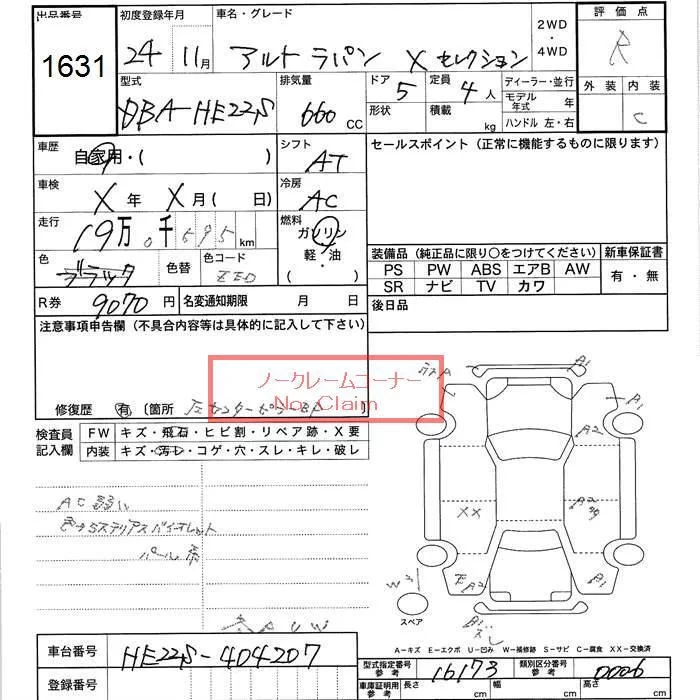 出品番号 1631
初度登録年月 24 11月
車名・グレード アルト ラパン X セレクション
2WD・4WD
評価点 R
外装 内装 C
型式 DBA-HE22S
排気量 660 CC
ドア 5
形状
定員 4 人
積載 kg
ディーラー・並行
モデル年式 年
ハンドル 左・右
車歴 自家用・( )
シフト AT
セールスポイント (正常に機能するものに限ります)
車検 X 年 X 月 ( 日)
冷房 AC
走行 19万0千695km
燃料 ガソリン 軽・油 ( )
色 ブラック 色替 色コード ZED
装備品 (純正品に限り○をつけてください)
新車保証書
PS PW ABS エアB AW
有・無
SR ナビ TV カワ
R券 9070 円
名変通知期限 月 日
後日品
注意事項申告欄 (不具合内容等は具体的に記入して下さい)
ノークレームコーナー
No Claim
修復歴 有 〔箇所
検査員記入欄
FW キズ・飛石・ヒビ割・リペア跡・X要
内装 キズ・汚レ・コゲ・穴・スレ・キレ・破レ
AC 弱い
パール
A1
B1
A2
A2
XX
A2
B1
スペア
A-キズ E-エクボ U-凹み W-補修跡 S-サビ C-腐食 XX-交換済
車台番号 HE22S-404207
登録番号
型式指定番号 参考 16173
類別区分番号 参考 0006
車庫証明用 参考 長さ cm 幅 cm 高さ cm